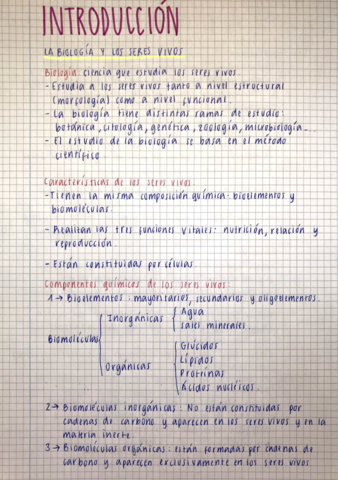 INTRODUCCIÓN
LA BIOLOGÍA Y LOS SERES VIVOS
Biología: ciencia que estudia los seres vivos.
- Estudia a los seres vivos tanto a nivel estructural
(morfología) como a nivel funcional.
- La biología tiene distintas ramas de estudio:
botánica, citología, genética, zoología, microbiología...
- El estudio de la biología se basa en el método
científico.
Características de los seres vivos:
- Tienen la misma composición química: bioelementos y
biomoléculas.
- Realizan las tres funciones vitales: nutrición, relación y
reproducción.
- Están constituidas por células.
Componentes químicos de los seres vivos:
1 → Bioelementos: mayoritarios, secundarios y oligoelementos.
Biomoléculas
Inorgánicas
Agua
Sales minerales.
Orgánicas
Glúcidos
Lípidos
Proteínas
Ácidos nucleicos.
2 → Biomoléculas inorgánicas: No están constituidas por
cadenas de carbono y aparecen en los seres vivos y en la
materia inerte.
3 → Biomoléculas orgánicas: están formadas por cadenas de
carbono y aparecen exclusivamente en los seres vivos